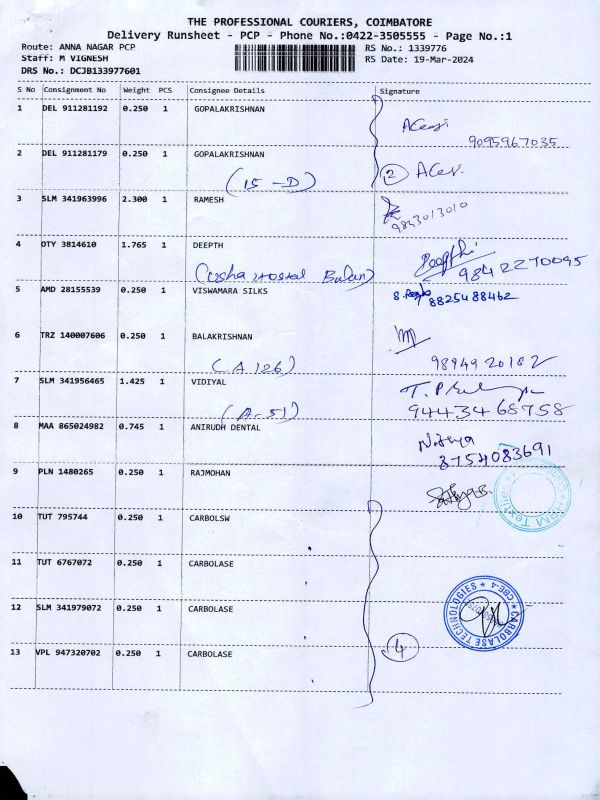 THE PROFESSIONAL COURIERS, COIMBATORE
Delivery Runsheet - PCP - Phone No.:0422-3505555 - Page No.:1
Route: ANNA NAGAR PCP RS No.: 1339776
Staff: M VIGNESH RS Date: 19-Mar-2024
DRS No.: DCJB133977601
S No Consignment No Weight PCS Consignee Details Signature
1 DEL 911281192 0.250 1 GOPALAKRISHNAN
9095967035
2 DEL 911281179 0.250 1 GOPALAKRISHNAN
(15-D) 2
3 SLM 341963996 2.300 1 RAMESH
9843013010
4 OTY 3814610 1.765 1 DEEPTH
Deepthi
(Usha Hostel Balan) 9842270095
5 AMD 28155539 0.250 1 VISWAMARA SILKS
8825488462
6 TRZ 140007606 0.250 1 BALAKRISHNAN
(A 126) 9894920182
7 SLM 341956465 1.425 1 VIDIYAL
(A-51) 9443468758
8 MAA 865024982 0.745 1 ANIRUDH DENTAL
8754083691
9 PLN 1480265 0.250 1 RAJMOHAN
10 TUT 795744 0.250 1 CARBOLSW
11 TUT 6767072 0.250 1 CARBOLASE
12 SLM 341979072 0.250 1 CARBOLASE
CARBOLASE TECHNOLOGIES * CBE-4 *
13 VPL 947320702 0.250 1 CARBOLASE
4